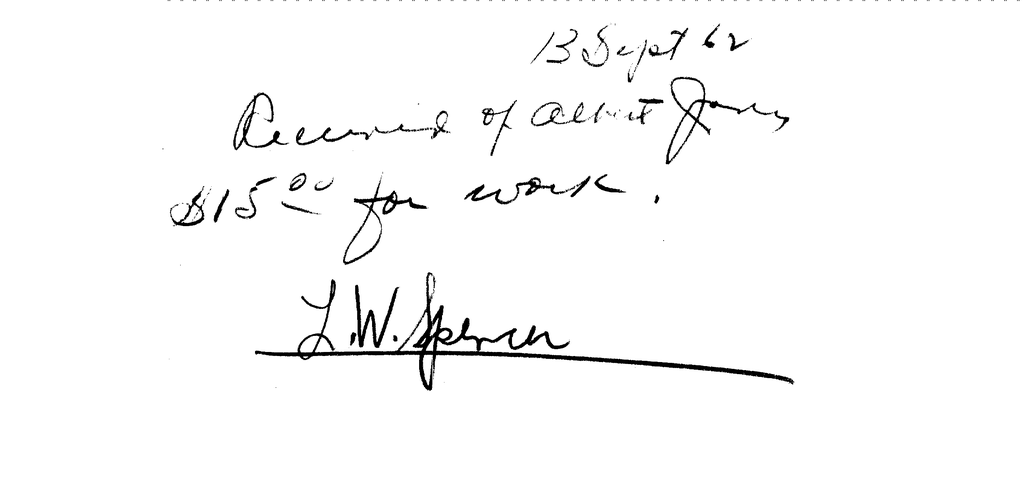 13 Sept 62
Received of Albert Jones
$15.00 for work.
L.W. Spencer